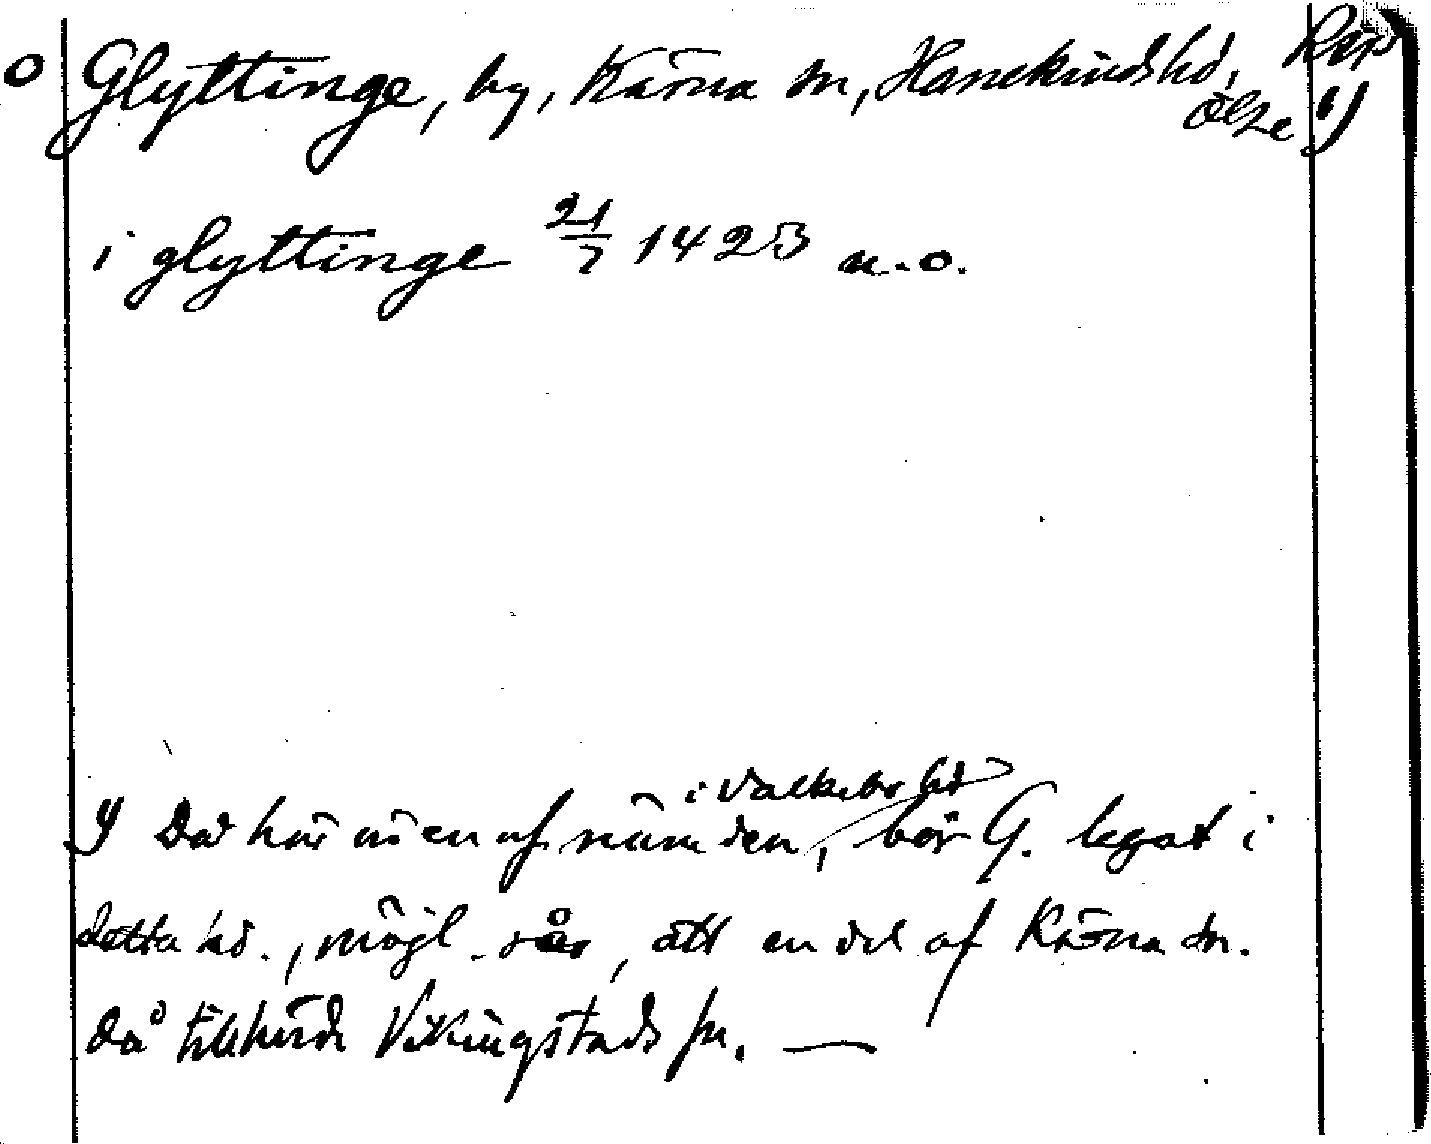 o Glyttinge, by, Kärna sn, Hanekinds hd, Rep
Ög. 1)
i glyttinge 21/7 1423 u. o.
i Valkebo hd
1) Då här är en af nämnden, bör G. legat i
detta hd., möjl. så, att en del af Kärna sn.
då tillhörde Vikingstads sn. —